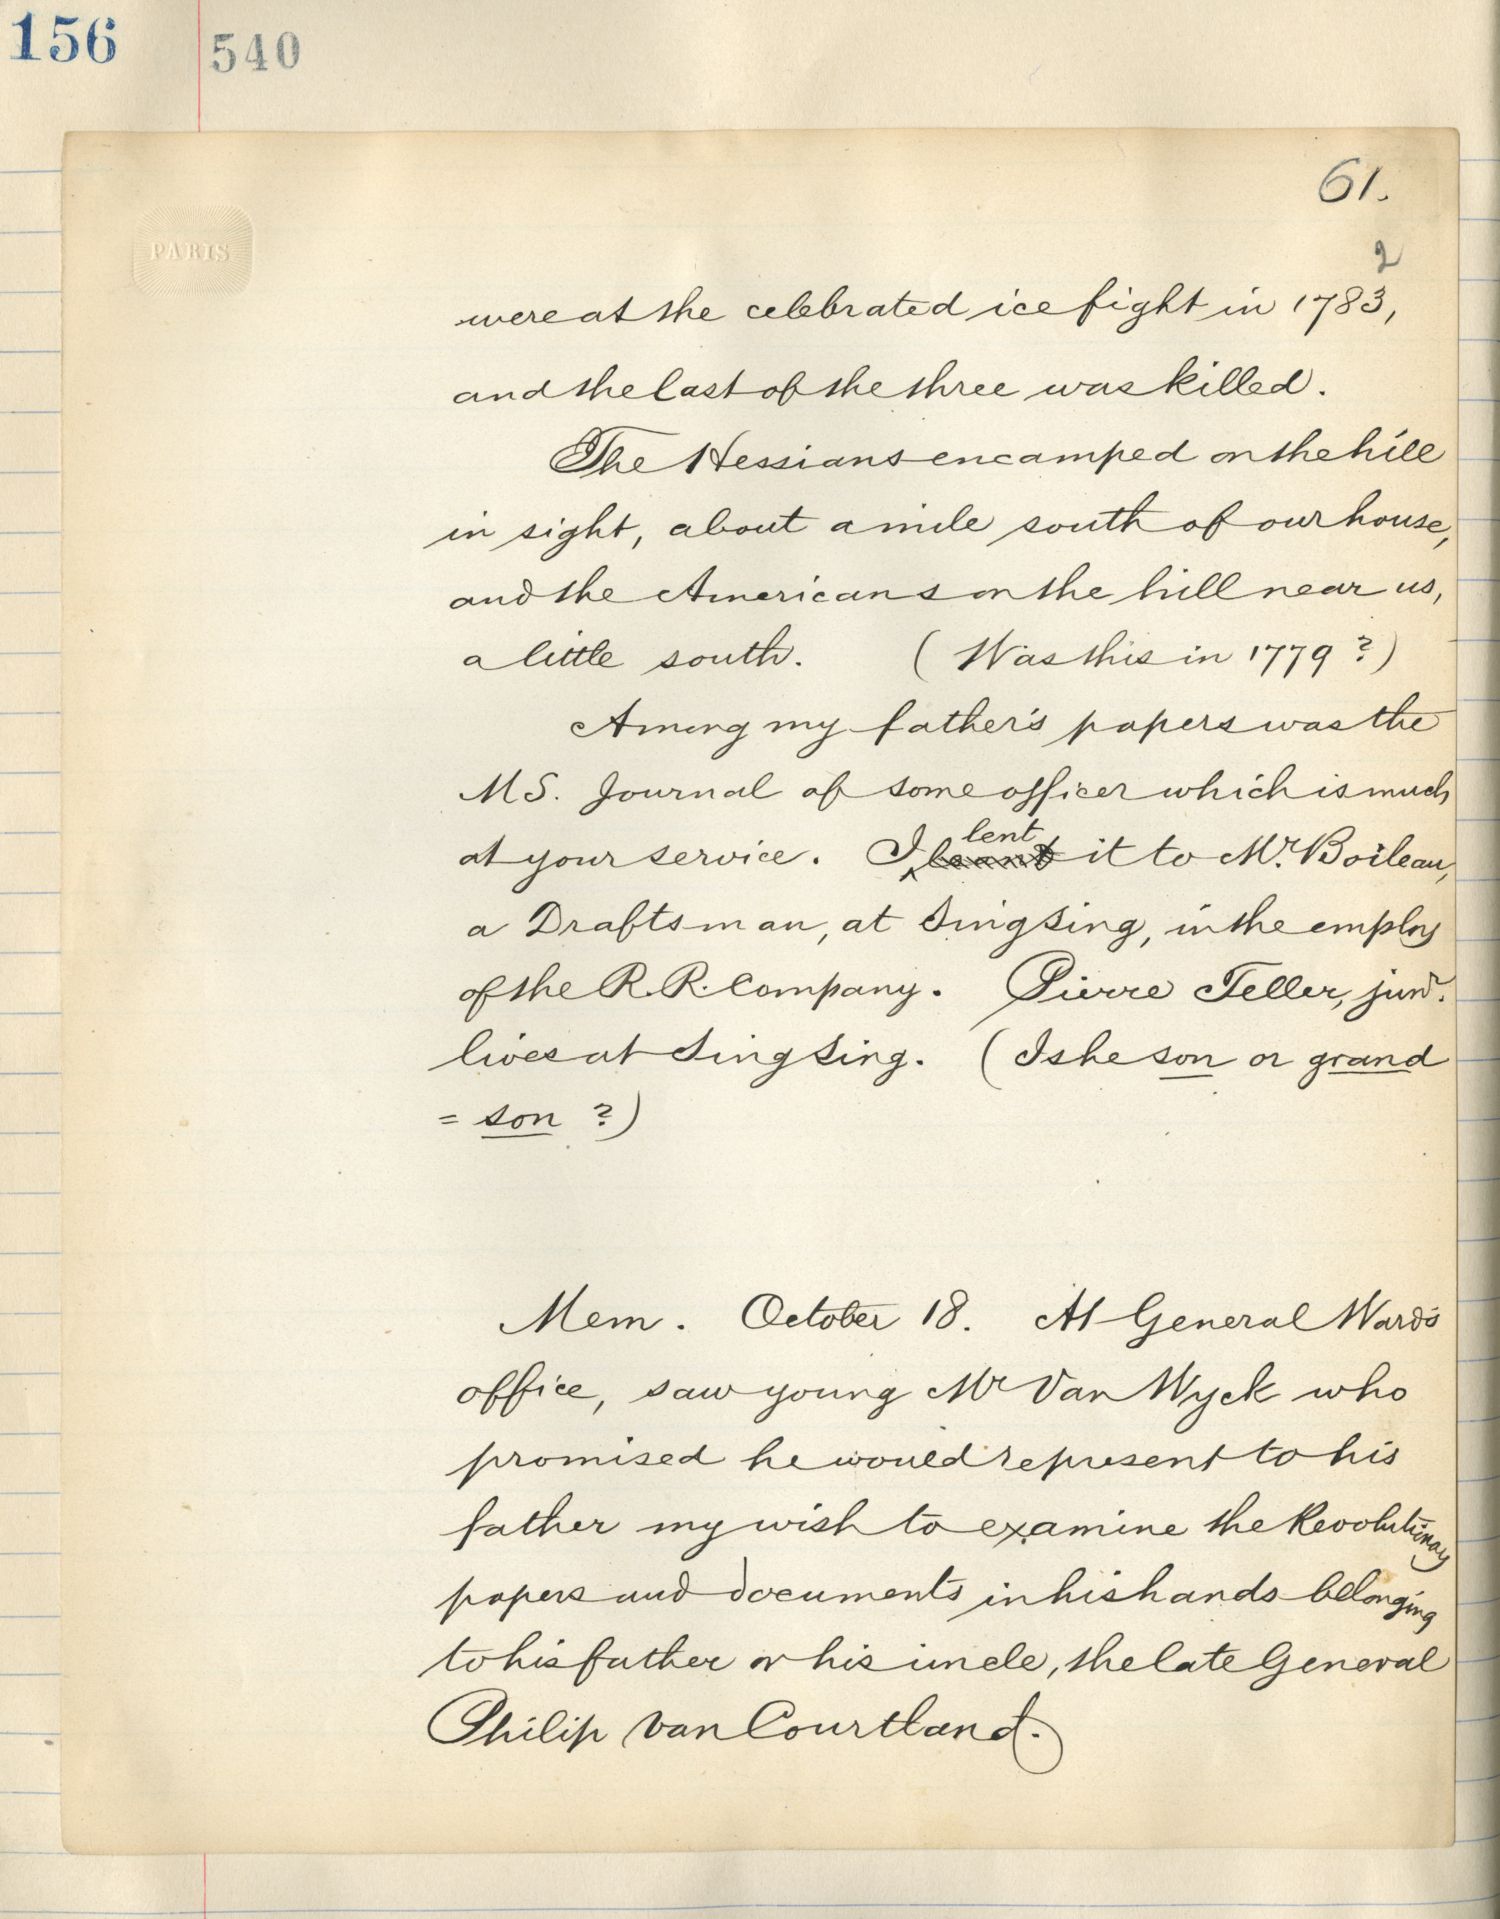 156
540
61.
PARIS
2
were at the celebrated ice fight in 1783,
and the last of the three was killed.
The Hessians encamped on the hill
in sight, about a mile south of our house,
and the Americans on the hill near us,
a little south. (Was this in 1779?)
Among my father's papers was the
MS. Journal of some officer which is much
lent
at your service. I leant it to Mr. Boileau,
a Draftsman, at Sing Sing, in the employ
of the R.R. Company. Pierre Teller, junr.
lives at Sing Sing. (Is he son or grand
= son ?)
Mem. October 18. At General Ward's
office, saw young Mr Van Wyck who
promised he would represent to his
father my wish to examine the Revolutionay
papers and documents in his hands belonging
to his father or his uncle, the late General
Philip Van Courtland.